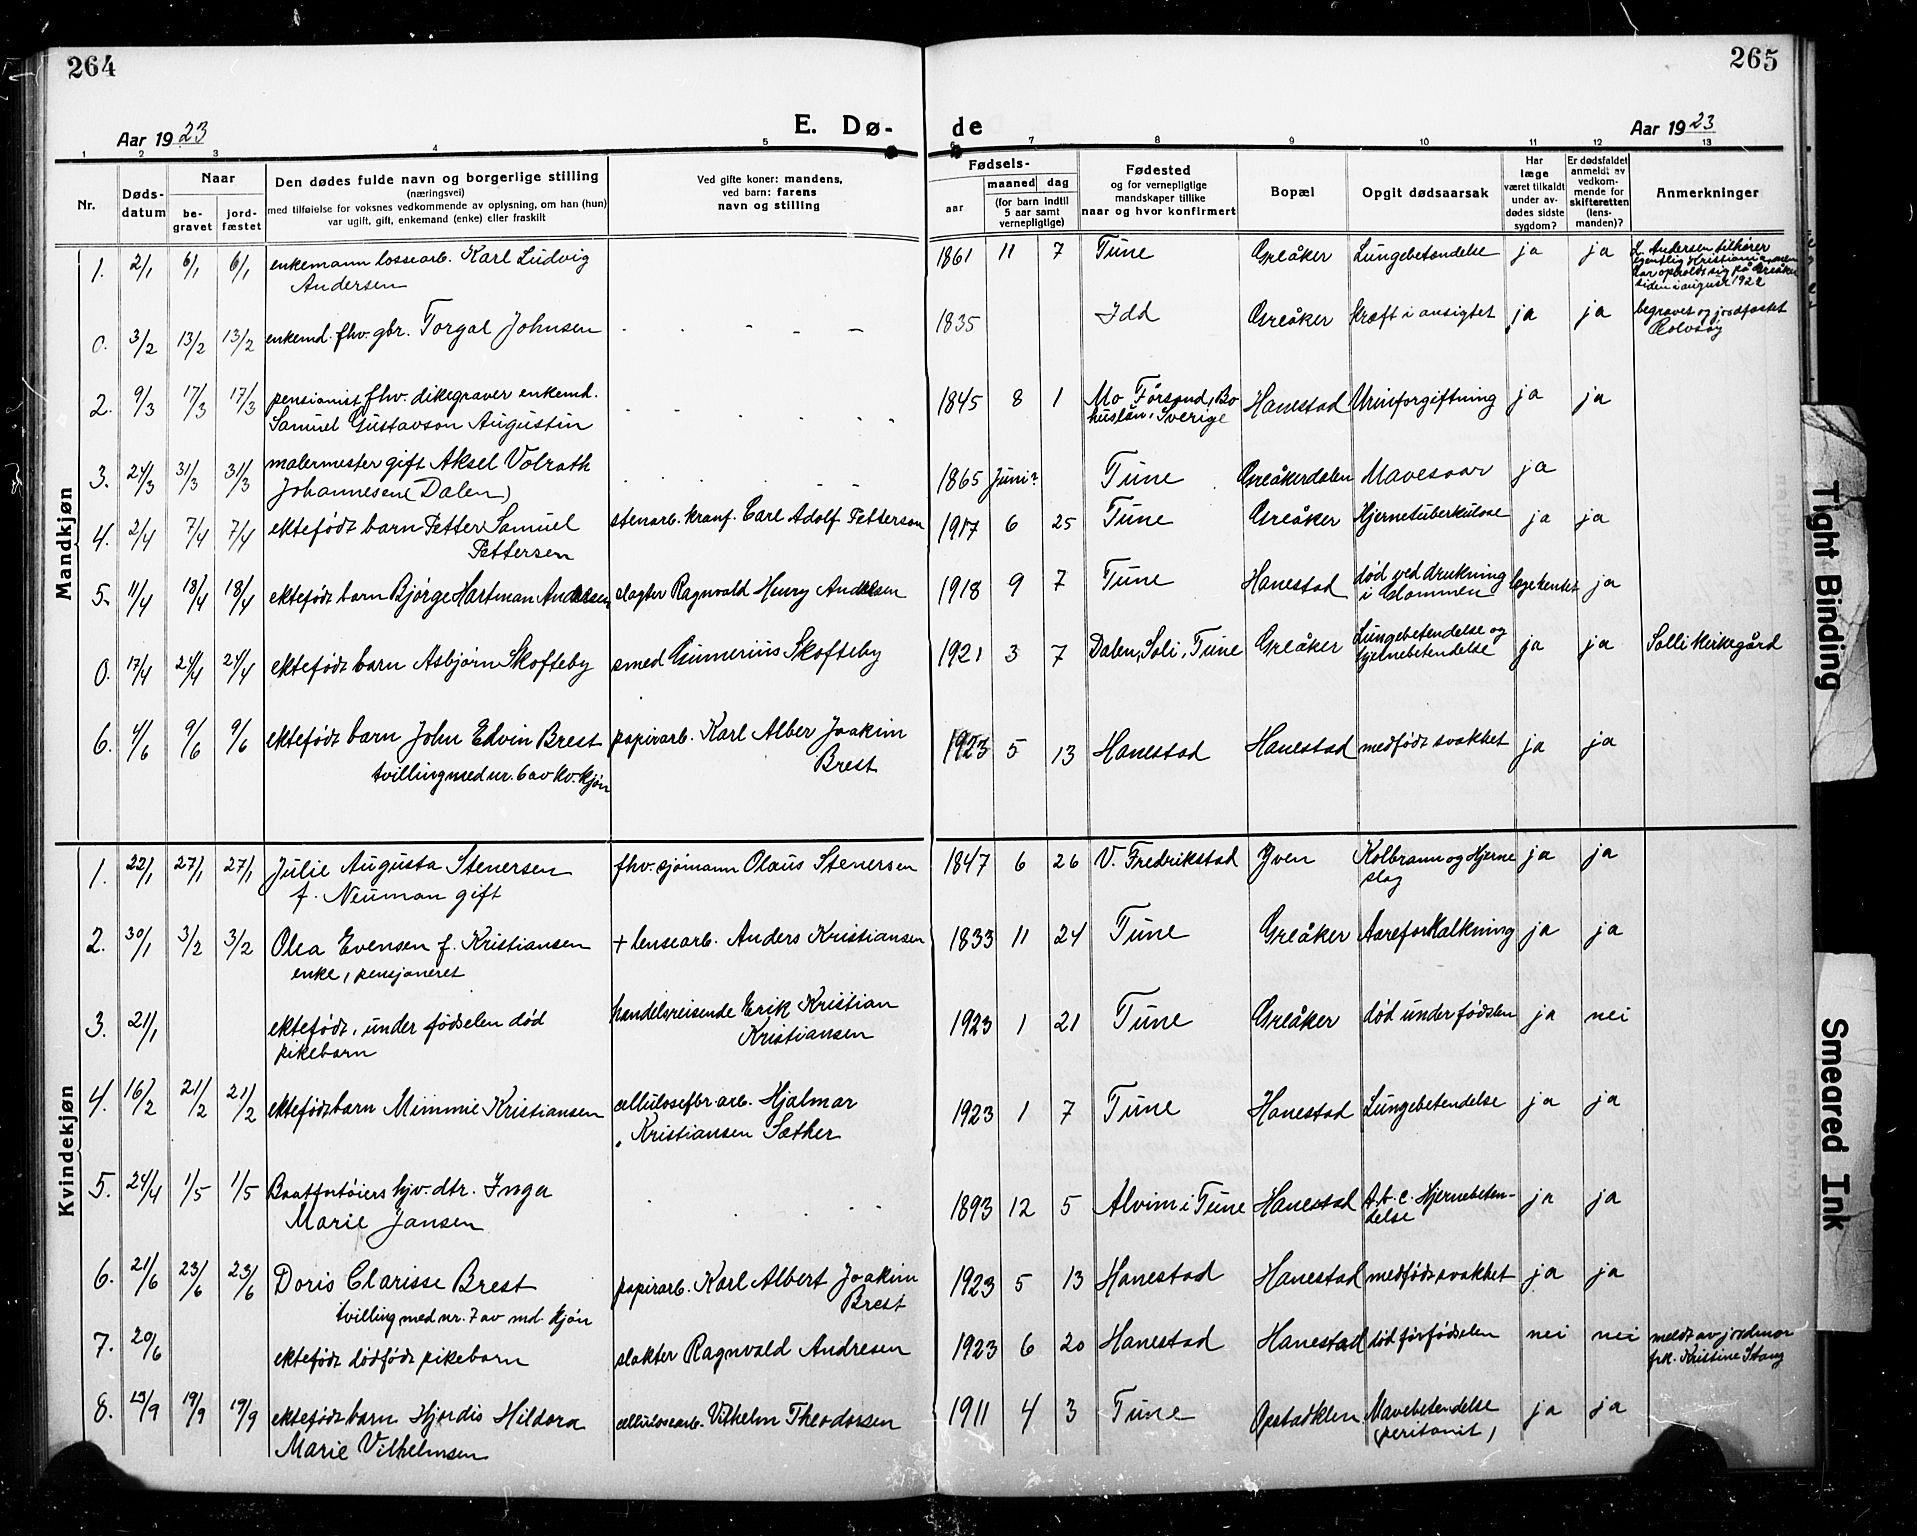 264
265
E. Dø-
de
Aar 1923
Aar 1923
1 2 3 4 5 6 7 8 9 10 11 12 13
Nr.
Døds-
datum
Naar
be-
gravet
jord-
fæstet
Den dødes fulde navn og borgerlige stilling
(næringsvei)
med tilføielse for voksnes vedkommende av oplysning, om han (hun)
var ugift, gift, enkemand (enke) eller fraskilt
Ved gifte koner: mandens,
ved barn: farens
navn og stilling
Fødsels-
aar
maaned dag
(for barn indtil
5 aar samt
vernepligtige)
Fødested
og for vernepligtige
mandskaper tillike
naar og hvor konfirmert
Bopæl
Opgit dødsaarsak
Har
læge
været tilkaldt
under av-
dødes sidste
sygdom?
Er dødsfaldet
anmeldt av
vedkom-
mende for
skifteretten
(lens-
manden)?
Anmerkninger
Mandkjøn
1. 2/1 6/1 6/1 enkemann lossearb. Karl Ludvig
Andersen
1861 11 7 Tune Greåker Lungebetændelse ja ja
L. Andersen tilhører
egentlig Kristiania, men
har opholdt sig på Greåker
siden i august 1922
0. 3/2 13/2 13/2 enkem. fhv. gbr. Torgal Johnsen - - - - -
1835 Idd Greåker kræft i ansigtet ja ja begravet og jordfæstet
Rolvsøy
2. 9/3 17/3 17/3 pensionist fhv. dikegraver enkemd.
Samuel Gustavson Augustin
1845 8 1 Mo Försond, Bo
huslän, Sverige Hanestad Urinforgiftning ja ja
3. 24/3 31/3 31/3 malermester gift Aksel Volrath
Johannesen (Dalen)
1865 Juni? Tune Greåkerdalen Mavesaar ja
4. 2/4 7/4 7/4 ektefødt barn Petter Samuel
Pettersen
stenarb. kranf. Carl Adolf Petterson
1917 6 25 Tune Greåker Hjernetuberkulose ja ja
5. 11/4 18/4 18/4 ektefødt barn Bjørge Hartman Andresen slagter Ragnvald Henry Andresen
1918 9 7 Tune Hanestad død ved drukning
i Glommen lægehentet ja
0. 17/4 24/4 24/4 ektefødt barn Asbjørn Skofteby smed Gunnerius Skofteby
1921 3 7 Dalen, Soli, Tune Greåker Lungebetendelse og
hjernebetendelse ja ja Solli kirkegård
6. 4/6 9/6 9/6 ektefødt barn John Edvin Brest papirarb. Karl Alber Joakim
Brest
tvilling med nr. 6 av kv. kjøn
1923 5 13 Hanestad Hanestad medfødt svakhet ja ja
Kvindekjøn
1. 22/1 27/1 27/1 Julie Augusta Stenersen
f. Neuman gift
fhv. sjømann Olaus Stenersen
1847 6 26 V. Fredrikstad Yven Kolbrann og Hjerne
slag ja ja
2. 30/1 3/2 3/2 Olea Evensen f. Kristiansen
enke, pensjoneret
+ lensearb. Anders Kristiansen
1833 11 24 Tune Greåker Aareforkalkning ja ja
3. 21/1 ektefødt, under fødselen død
pikebarn
handelsreisende Erik Kristian
Kristiansen
1923 1 21 Tune Greåker død under fødslen ja nei
4. 16/2 21/2 21/2 ektefødt barn Mimmie Kristiansen cellulosefbr. arb. Hjalmar
Kristiansen Sæther
1923 1 7 Tune Hanestad Lungebetendelse ja ja
5. 24/4 1/5 1/5 Baatfortøiers hjv. dtr. Inga
Marie Jansen
1893 12 5 Alvim i Tune Hanestad A.b.c. Hjernebeten-
delse ja ja
6. 21/6 23/6 23/6 Doris Clarisse Brest
tvilling med nr. 7 av md. kjøn
papirarb. Karl Albert Joakim
Brest
1923 5 13 Hanestad Hanestad medfødt svakhet ja ja
7. 20/6 ektefødt dødfødt pikebarn slakter Ragnvald Andresen
1923 6 20 Hanestad Hanestad død før fødselen nei nei meldt av jordmor
frk. Kristine Stang
8. 13/9 19/9 19/9 ektefødt barn Hjordis Hildora
Marie Vilhelmsen
cellulosearb. Vilhelm Theodorsen
1911 4 3 Tune Opstadklen Mavebetendelse
(peritonit) ja ja
Tight Binding
Smeared Ink